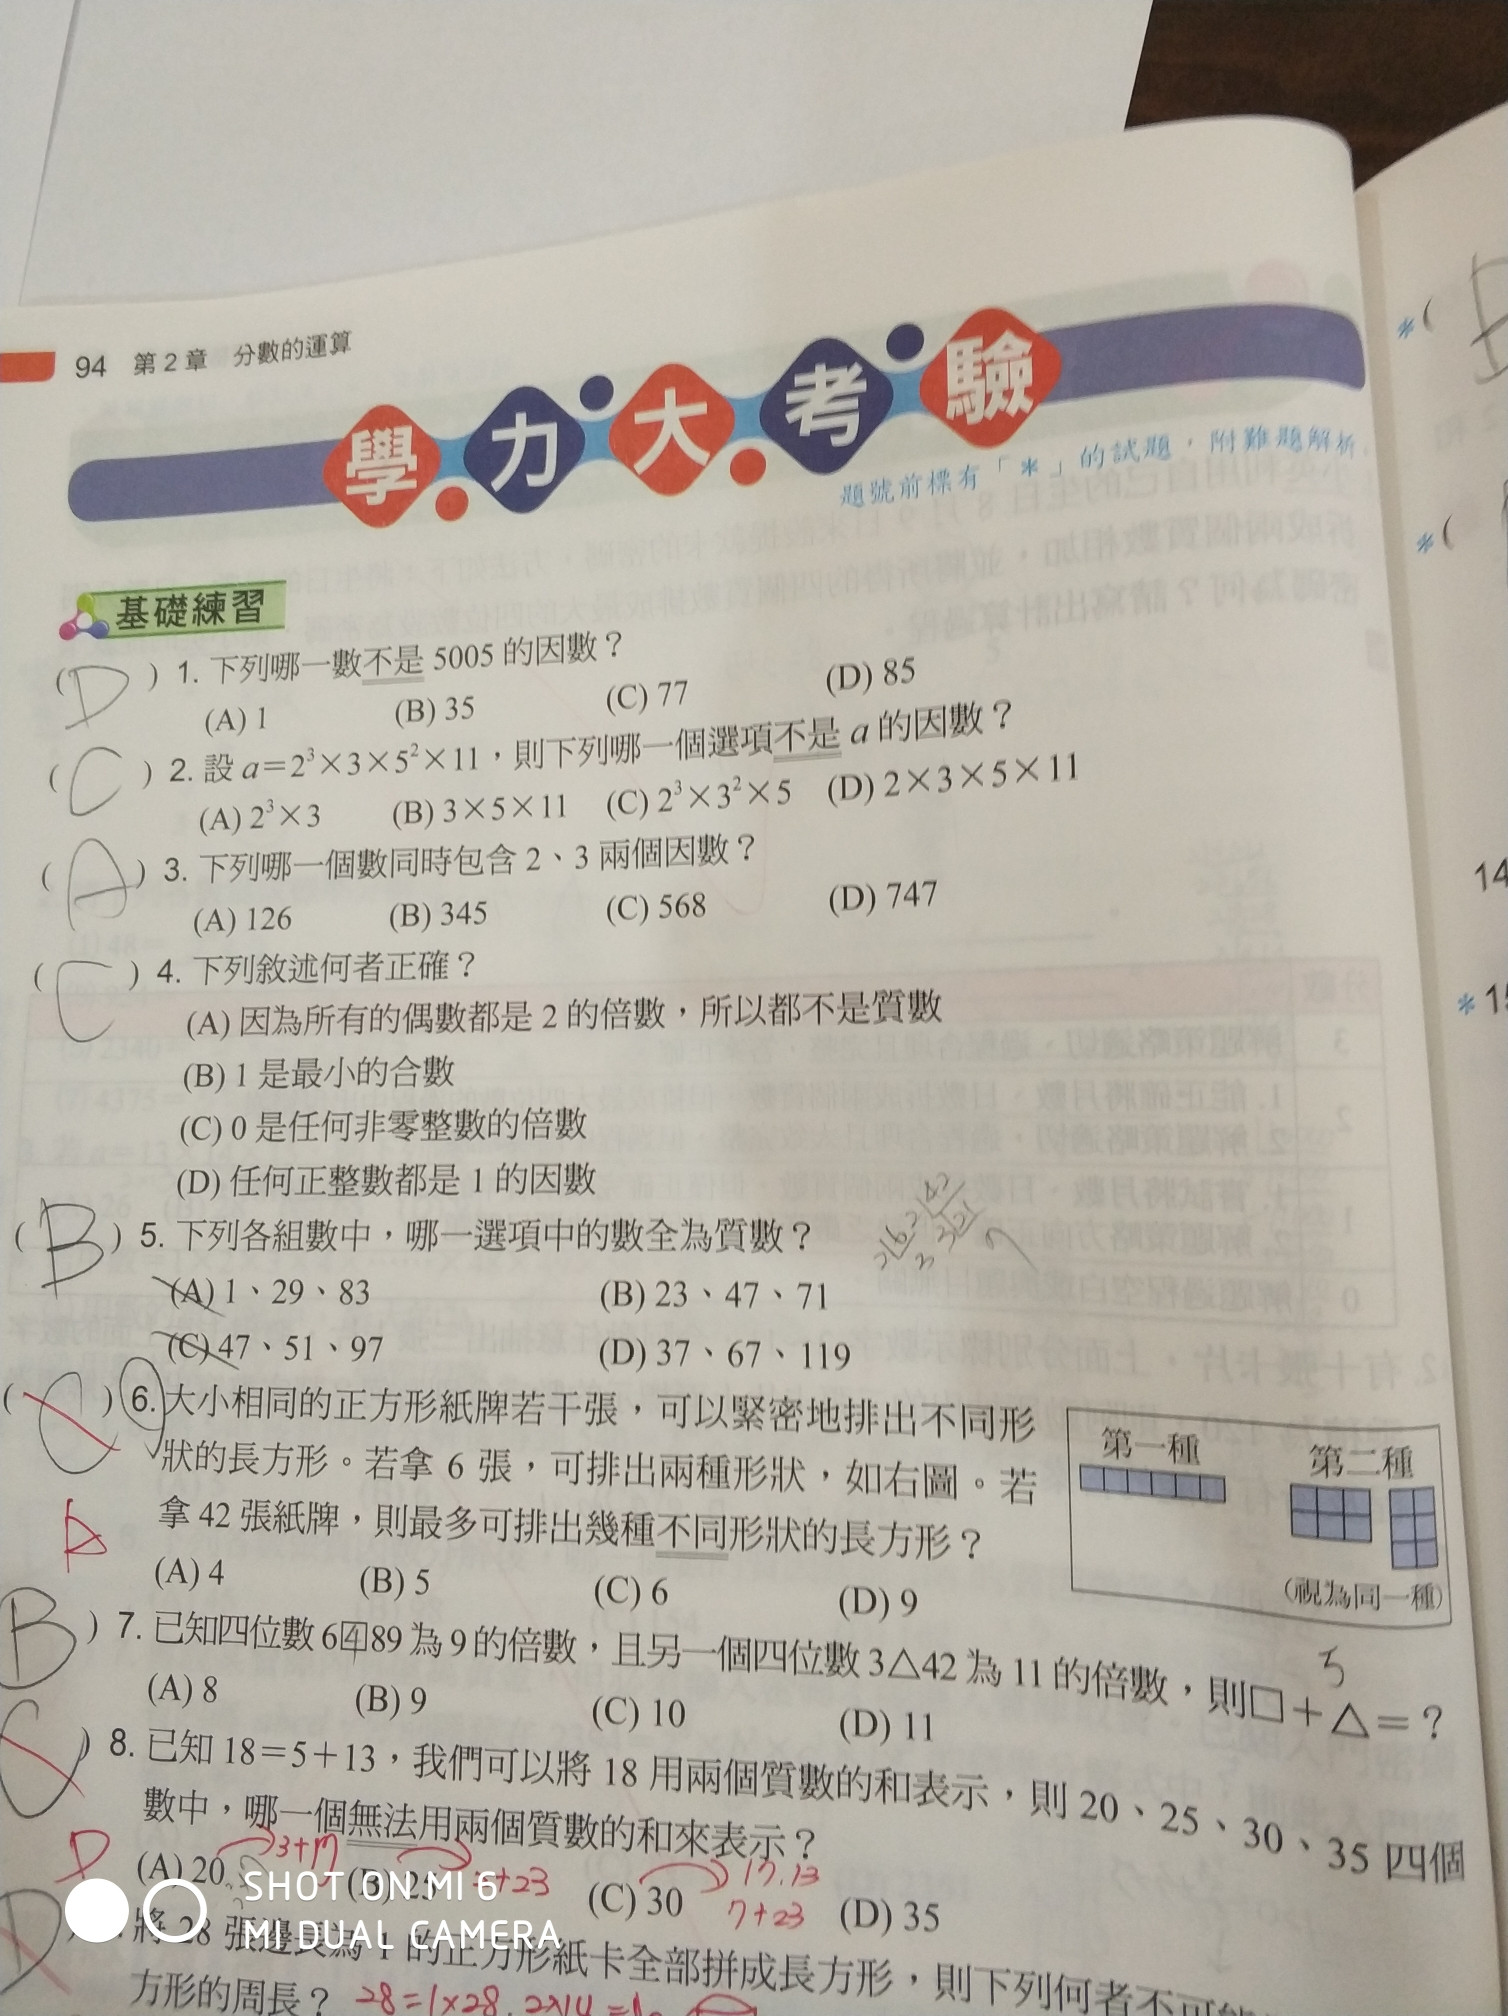 94 第2章 分數的運算
學力大考驗
題號前標有「*」的試題,附難題解析
基礎練習
(D) 1. 下列哪一數不是 5005 的因數?
(A) 1 (B) 35 (C) 77 (D) 85
(C) 2. 設 a=2³×3×5²×11,則下列哪一個選項不是 a 的因數?
(A) 2³×3 (B) 3×5×11 (C) 2³×3²×5 (D) 2×3×5×11
(A) 3. 下列哪一個數同時包含 2、3 兩個因數?
(A) 126 (B) 345 (C) 568 (D) 747
(C) 4. 下列敘述何者正確?
(A) 因為所有的偶數都是 2 的倍數,所以都不是質數
(B) 1 是最小的合數
(C) 0 是任何非零整數的倍數
(D) 任何正整數都是 1 的因數
(B) 5. 下列各組數中,哪一選項中的數全為質數?
(A) 1、29、83 (B) 23、47、71
(C) 47、51、97 (D) 37、67、119
(C) 6. 大小相同的正方形紙牌若干張,可以緊密地排出不同形
狀的長方形。若拿 6 張,可排出兩種形狀,如右圖。若
拿 42 張紙牌,則最多可排出幾種不同形狀的長方形?
A
(A) 4 (B) 5 (C) 6 (D) 9
第一種 第二種
(視為同一種)
B ) 7. 已知四位數 6□4 89 為 9 的倍數,且另一個四位數 3△42 為 11 的倍數,則□+△=?
5
(A) 8 (B) 9 (C) 10 (D) 11
C ) 8. 已知 18=5+13,我們可以將 18 用兩個質數的和表示,則 20、25、30、35 四個
數中,哪一個無法用兩個質數的和來表示?
D
(A) 20 3+17 (B) 25 +23 (C) 30 17.13 (D) 35
7+23
D
將 28 張邊長為 1 的正方形紙卡全部拼成長方形,則下列何者不可能
方形的周長? 28=1×28. 2×14
14
*15
SHOT ON MI 6
MI DUAL CAMERA